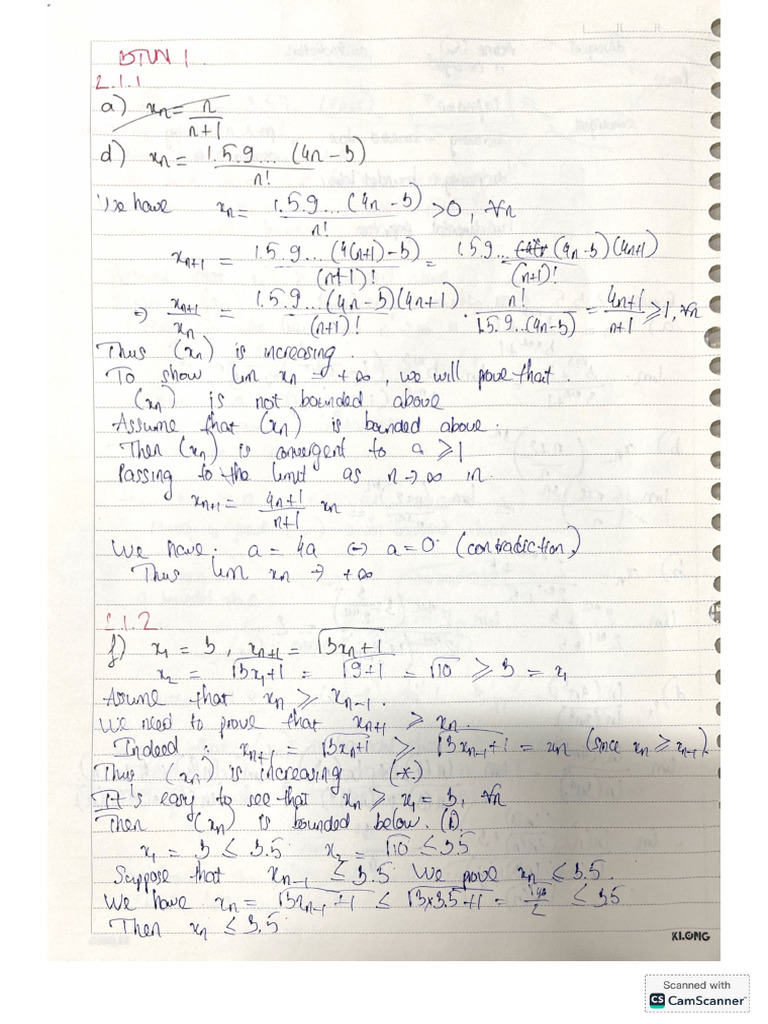 BTVN 1
2.1.1
a) xₙ = n/(n+1)
d) xₙ = 1.5.9...(4n-3)/n!
We have xₙ = 1.5.9...(4n-3)/n! > 0, ∀n
xₙ₊₁ = 1.5.9...(4(n+1)-3)/(n+1)! = 1.5.9...(4n-3)(4n+1)/(n+1)!
=> xₙ₊₁/xₙ = 1.5.9...(4n-3)(4n+1)/(n+1)! . n!/1.5.9...(4n-3) = (4n+1)/(n+1) ≥ 1, ∀n
Thus (xₙ) is increasing.
To show lim xₙ = +∞, we will prove that
(xₙ) is not bounded above
Assume that (xₙ) is bounded above.
Then (xₙ) is convergent to a ≥ 1
Passing to the limit as n → ∞ in
xₙ₊₁ = (4n+1)/(n+1) xₙ
We have: a = 4a <=> a = 0 (contradiction)
Thus lim xₙ → +∞
2.1.2
f) x₁ = 3, xₙ₊₁ = √(3xₙ+1)
x₂ = √(3x₁+1) = √(9+1) = √10 ≥ 3 = x₁
Assume that xₙ ≥ xₙ₋₁.
We need to prove that xₙ₊₁ ≥ xₙ.
Indeed: xₙ₊₁ = √(3xₙ+1) ≥ √(3xₙ₋₁+1) = xₙ (since xₙ ≥ xₙ₋₁).
Thus (xₙ) is increasing (*)
It's easy to see that xₙ ≥ x₁ = 3, ∀n
Then (xₙ) is bounded below. (1)
x₁ = 3 ≤ 3.5 x₂ = √10 ≤ 3.5
Suppose that xₙ₋₁ ≤ 3.5. We prove xₙ ≤ 3.5.
We have xₙ = √(3xₙ₋₁+1) ≤ √(3×3.5+1) = /2 ≤ 3.5
Then xₙ ≤ 3.5
KLONG
Scanned with
CS CamScanner